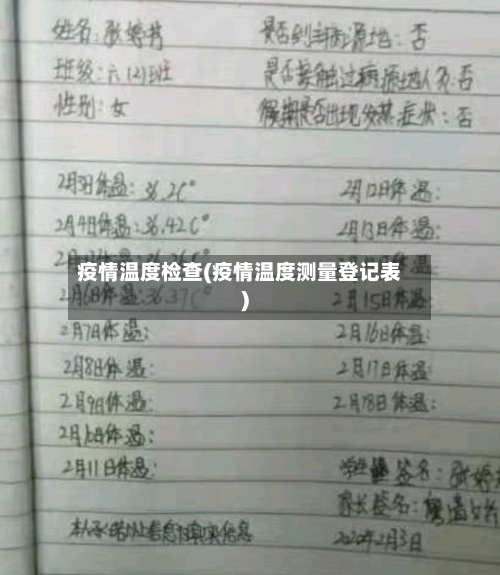 姓名:张婷 是否到主病源地:否
班级:六(2)班 是否接触过病源地人员:否
性别:女 假期是否出现发热症状:否
2月3日体温:36.2C° 2月12日体温:
2月4日体温:36.42C° 2月13日体温:
疫情温度检查(疫情温度测量登记表
)
2月6日体温:36.37C° 2月15日体温:
2月7日体温: 2月16日体温:
2月8日体温: 2月17日体温:
2月9日体温: 2月18日体温:
2月10日体温:
2月11日体温: 学生签名:张婷
家长签名:
本人承诺以上信息为真实信息 2020年2月3日